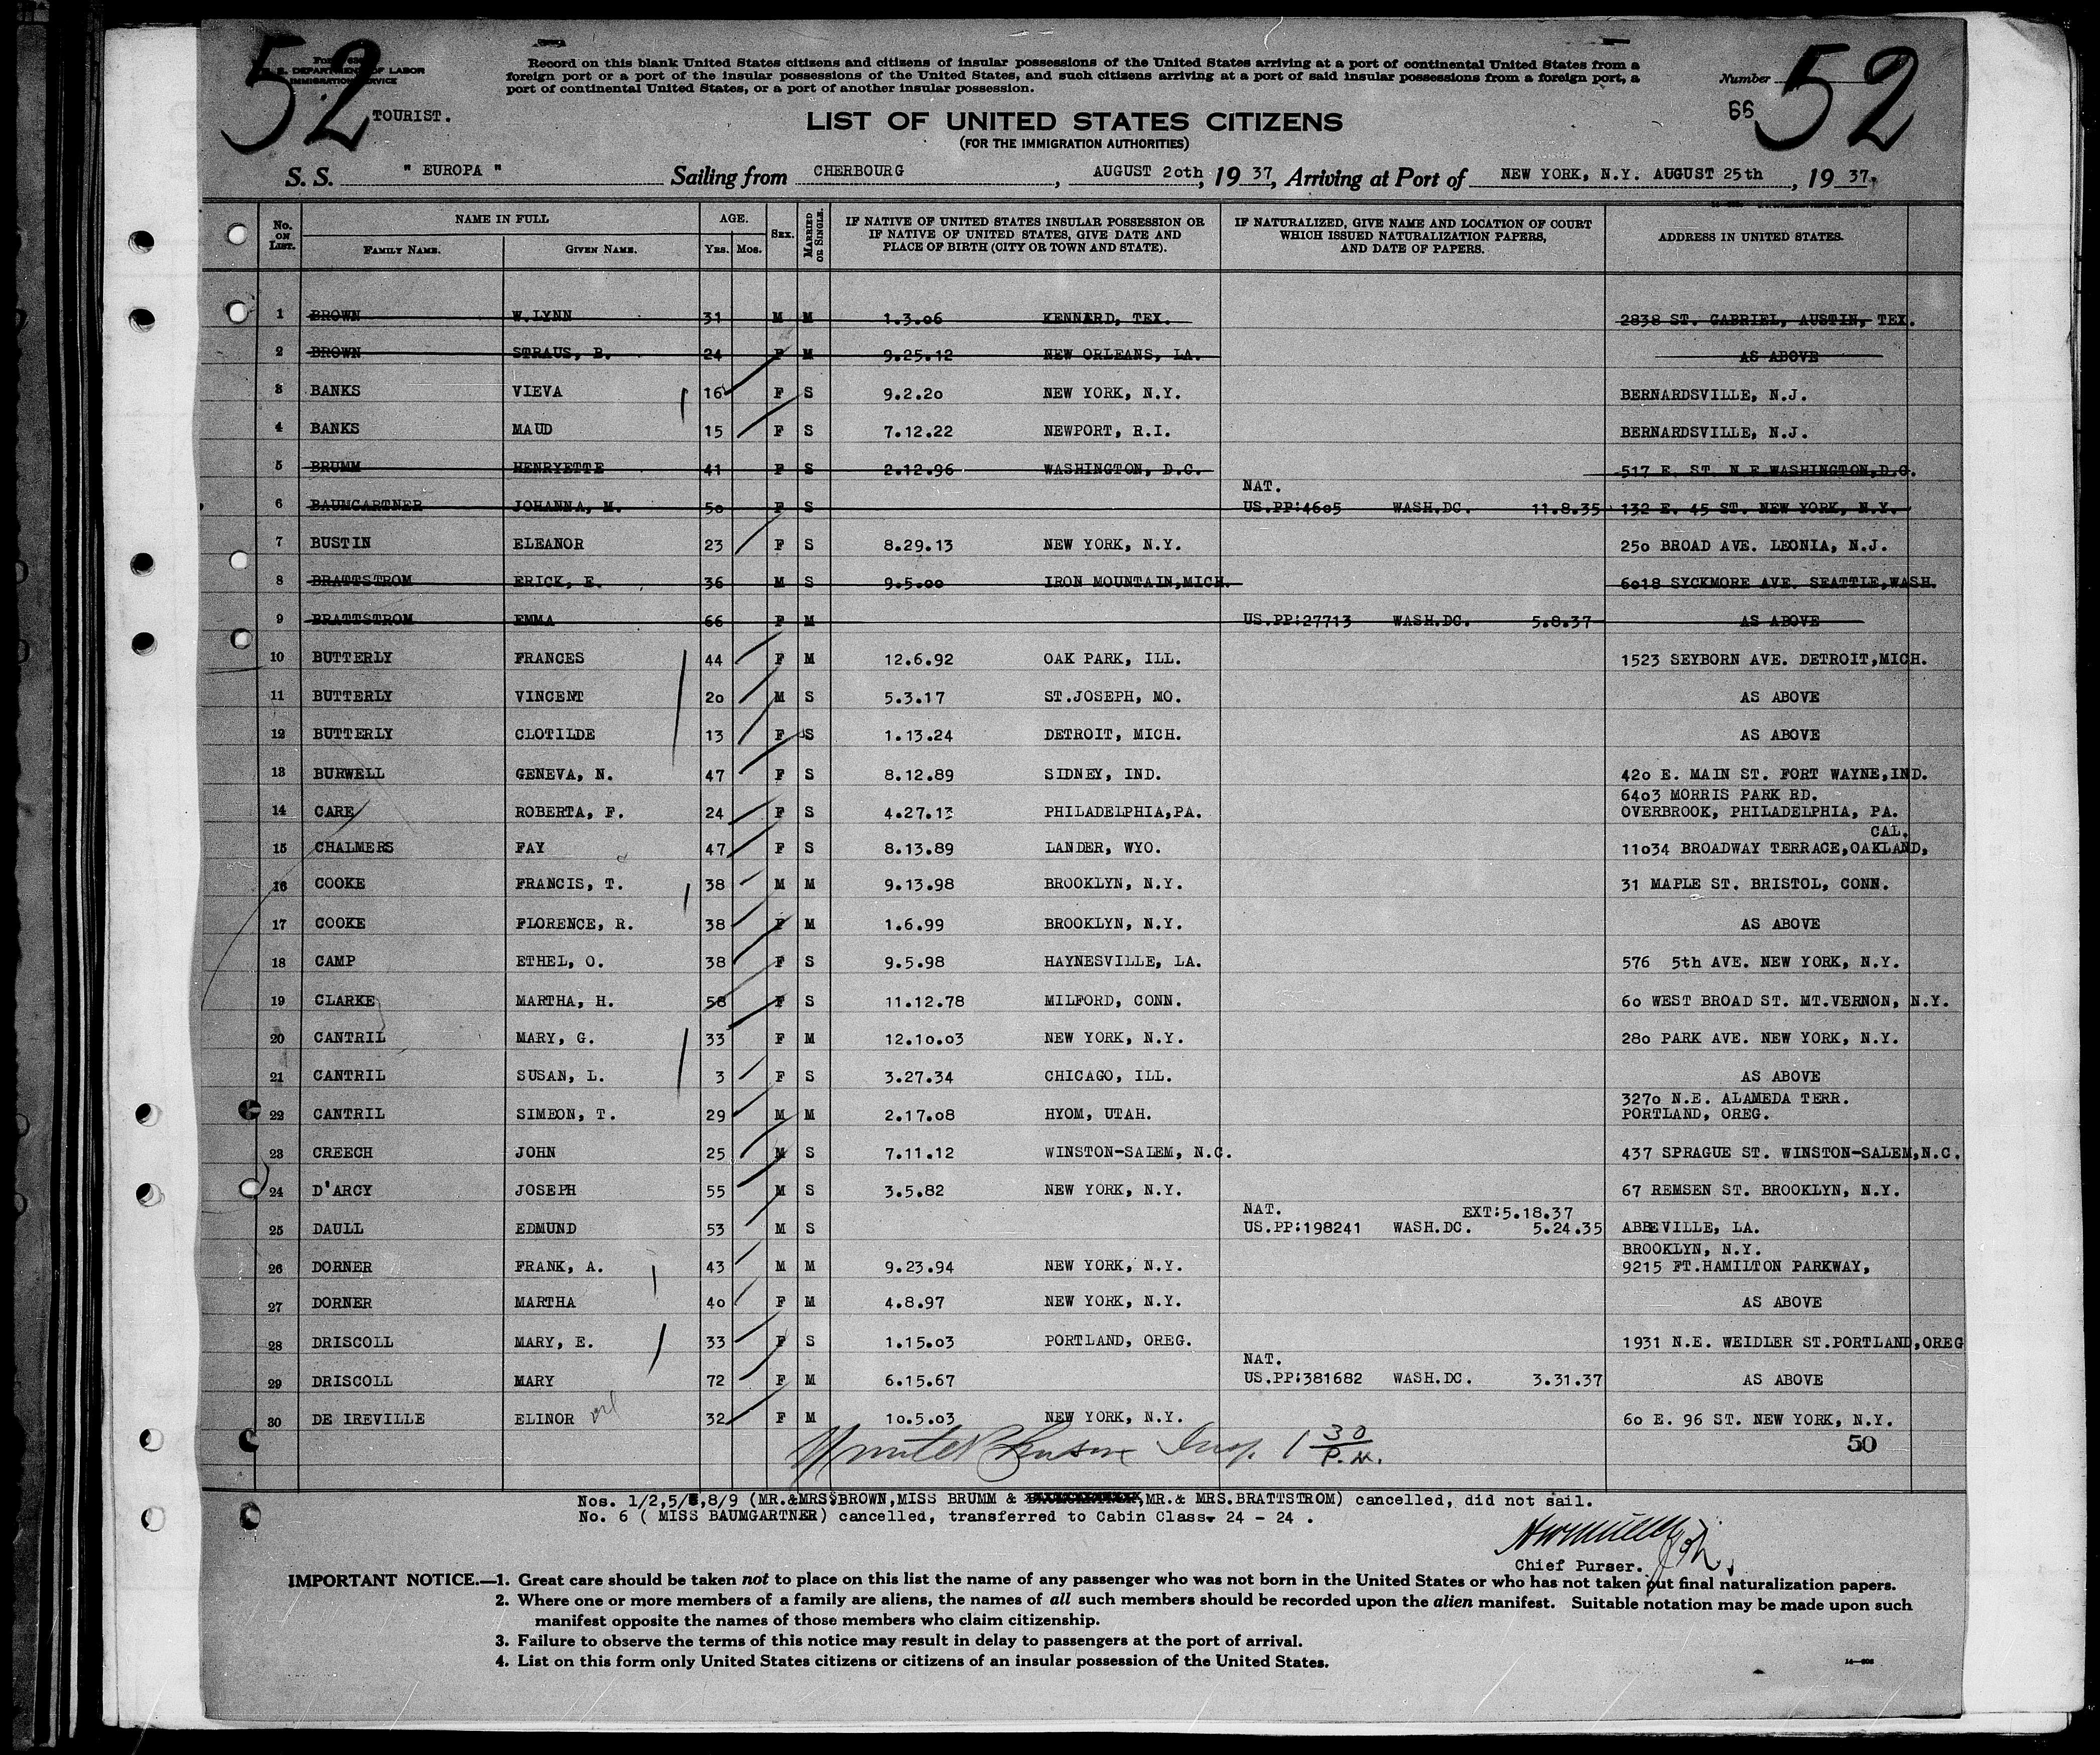 52
U. S. DEPARTMENT OF LABOR
IMMIGRATION SERVICE
TOURIST.
Record on this blank United States citizens and citizens of insular possessions of the United States arriving at a port of continental United States from a
foreign port or a port of the insular possessions of the United States, and such citizens arriving at a port of said insular possessions from a foreign port, a
port of continental United States, or a port of another insular possession.
Number
66
52
LIST OF UNITED STATES CITIZENS
(FOR THE IMMIGRATION AUTHORITIES)
S. S. " EUROPA " Sailing from CHERBOURG, AUGUST 20th, 19 37, Arriving at Port of NEW YORK, N.Y. AUGUST 25th, 19 37.
No. ON LIST. NAME IN FULL FAMILY NAME. GIVEN NAME. AGE. YRS. MOS. SEX. MARRIED OR SINGLE. IF NATIVE OF UNITED STATES INSULAR POSSESSION OR IF NATIVE OF UNITED STATES, GIVE DATE AND PLACE OF BIRTH (CITY OR TOWN AND STATE). IF NATURALIZED, GIVE NAME AND LOCATION OF COURT WHICH ISSUED NATURALIZATION PAPERS, AND DATE OF PAPERS. ADDRESS IN UNITED STATES.
1 BROWN W.LYNN 31 M M 1.3.06 KENNARD, TEX. 2838 ST. GABRIEL, AUSTIN, TEX.
2 BROWN STRAUS, B. 24 F M 9.25.12 NEW ORLEANS, LA. AS ABOVE
3 BANKS VIEVA 16 F S 9.2.20 NEW YORK, N.Y. BERNARDSVILLE, N.J.
4 BANKS MAUD 15 F S 7.12.22 NEWPORT, R.I. BERNARDSVILLE, N.J.
5 BRUMM HENRYETTE 41 F S 2.12.96 WASHINGTON, D.C. 517 E. ST. N.E.WASHINGTON,D.C.
NAT.
6 BAUMGARTNER JOHANNA, M. 50 F S US.PP:4605 WASH.DC. 11.8.35 132 E. 45 ST. NEW YORK, N.Y.
7 BUSTIN ELEANOR 23 F S 8.29.13 NEW YORK, N.Y. 250 BROAD AVE. LEONIA, N.J.
8 BRATTSTROM ERICK, E. 36 M S 9.5.00 IRON MOUNTAIN,MICH. 6018 SYCKMORE AVE. SEATTLE,WASH.
9 BRATTSTROM EMMA 66 F M US.PP:27713 WASH.DC. 5.8.37 AS ABOVE
10 BUTTERLY FRANCES 44 F M 12.6.92 OAK PARK, ILL. 1523 SEYBORN AVE. DETROIT,MICH.
11 BUTTERLY VINCENT 20 M S 5.3.17 ST.JOSEPH, MO. AS ABOVE
12 BUTTERLY CLOTILDE 13 F S 1.13.24 DETROIT, MICH. AS ABOVE
13 BURWELL GENEVA, N. 47 F S 8.12.89 SIDNEY, IND. 420 E. MAIN ST. FORT WAYNE,IND.
6403 MORRIS PARK RD.
14 CARE ROBERTA, F. 24 F S 4.27.13 PHILADELPHIA,PA. OVERBROOK, PHILADELPHIA, PA.
CAL.
15 CHALMERS FAY 47 F S 8.13.89 LANDER, WYO. 11034 BROADWAY TERRACE,OAKLAND,
16 COOKE FRANCIS, T. 38 M M 9.13.98 BROOKLYN, N.Y. 31 MAPLE ST. BRISTOL, CONN.
17 COOKE FLORENCE, R. 38 F M 1.6.99 BROOKLYN, N.Y. AS ABOVE
18 CAMP ETHEL, O. 38 F S 9.5.98 HAYNESVILLE, LA. 576 5th AVE. NEW YORK, N.Y.
19 CLARKE MARTHA, H. 58 F S 11.12.78 MILFORD, CONN. 60 WEST BROAD ST. MT.VERNON, N.Y.
20 CANTRIL MARY, G. 33 F M 12.10.03 NEW YORK, N.Y. 280 PARK AVE. NEW YORK, N.Y.
21 CANTRIL SUSAN, L. 3 F S 3.27.34 CHICAGO, ILL. AS ABOVE
3270 N.E. ALAMEDA TERR.
22 CANTRIL SIMEON, T. 29 M M 2.17.08 HYOM, UTAH. PORTLAND, OREG.
23 CREECH JOHN 25 M S 7.11.12 WINSTON-SALEM, N.C. 437 SPRAGUE ST. WINSTON-SALEM,N.C.
24 D'ARCY JOSEPH 55 M S 3.5.82 NEW YORK, N.Y. 67 REMSEN ST. BROOKLYN, N.Y.
NAT. EXT:5.18.37
25 DAULL EDMUND 53 M S US.PP:198241 WASH.DC. 5.24.35 ABBEVILLE, LA.
BROOKLYN, N.Y.
26 DORNER FRANK, A. 43 M M 9.23.94 NEW YORK, N.Y. 9215 FT.HAMILTON PARKWAY,
27 DORNER MARTHA 40 F M 4.8.97 NEW YORK, N.Y. AS ABOVE
28 DRISCOLL MARY, E. 33 F S 1.15.03 PORTLAND, OREG. 1931 N.E. WEIDLER ST.PORTLAND,OREG
NAT.
29 DRISCOLL MARY 72 F M 6.15.67 US.PP:381682 WASH.DC. 3.31.37 AS ABOVE
30 DE IREVILLE ELINOR 32 F M 10.5.03 NEW YORK, N.Y. 60 E. 96 ST. NEW YORK, N.Y.
Insp. 1 30 P.M.
50
Nos. 1/2,5/6,8/9 (MR.&MRS.BROWN,MISS BRUMM & ,MR.& MRS.BRATTSTROM) cancelled, did not sail.
No. 6 ( MISS BAUMGARTNER) cancelled, transferred to Cabin Class. 24 - 24 .
Chief Purser.
IMPORTANT NOTICE.—1. Great care should be taken not to place on this list the name of any passenger who was not born in the United States or who has not taken out final naturalization papers.
2. Where one or more members of a family are aliens, the names of all such members should be recorded upon the alien manifest. Suitable notation may be made upon such
manifest opposite the names of those members who claim citizenship.
3. Failure to observe the terms of this notice may result in delay to passengers at the port of arrival.
4. List on this form only United States citizens or citizens of an insular possession of the United States.